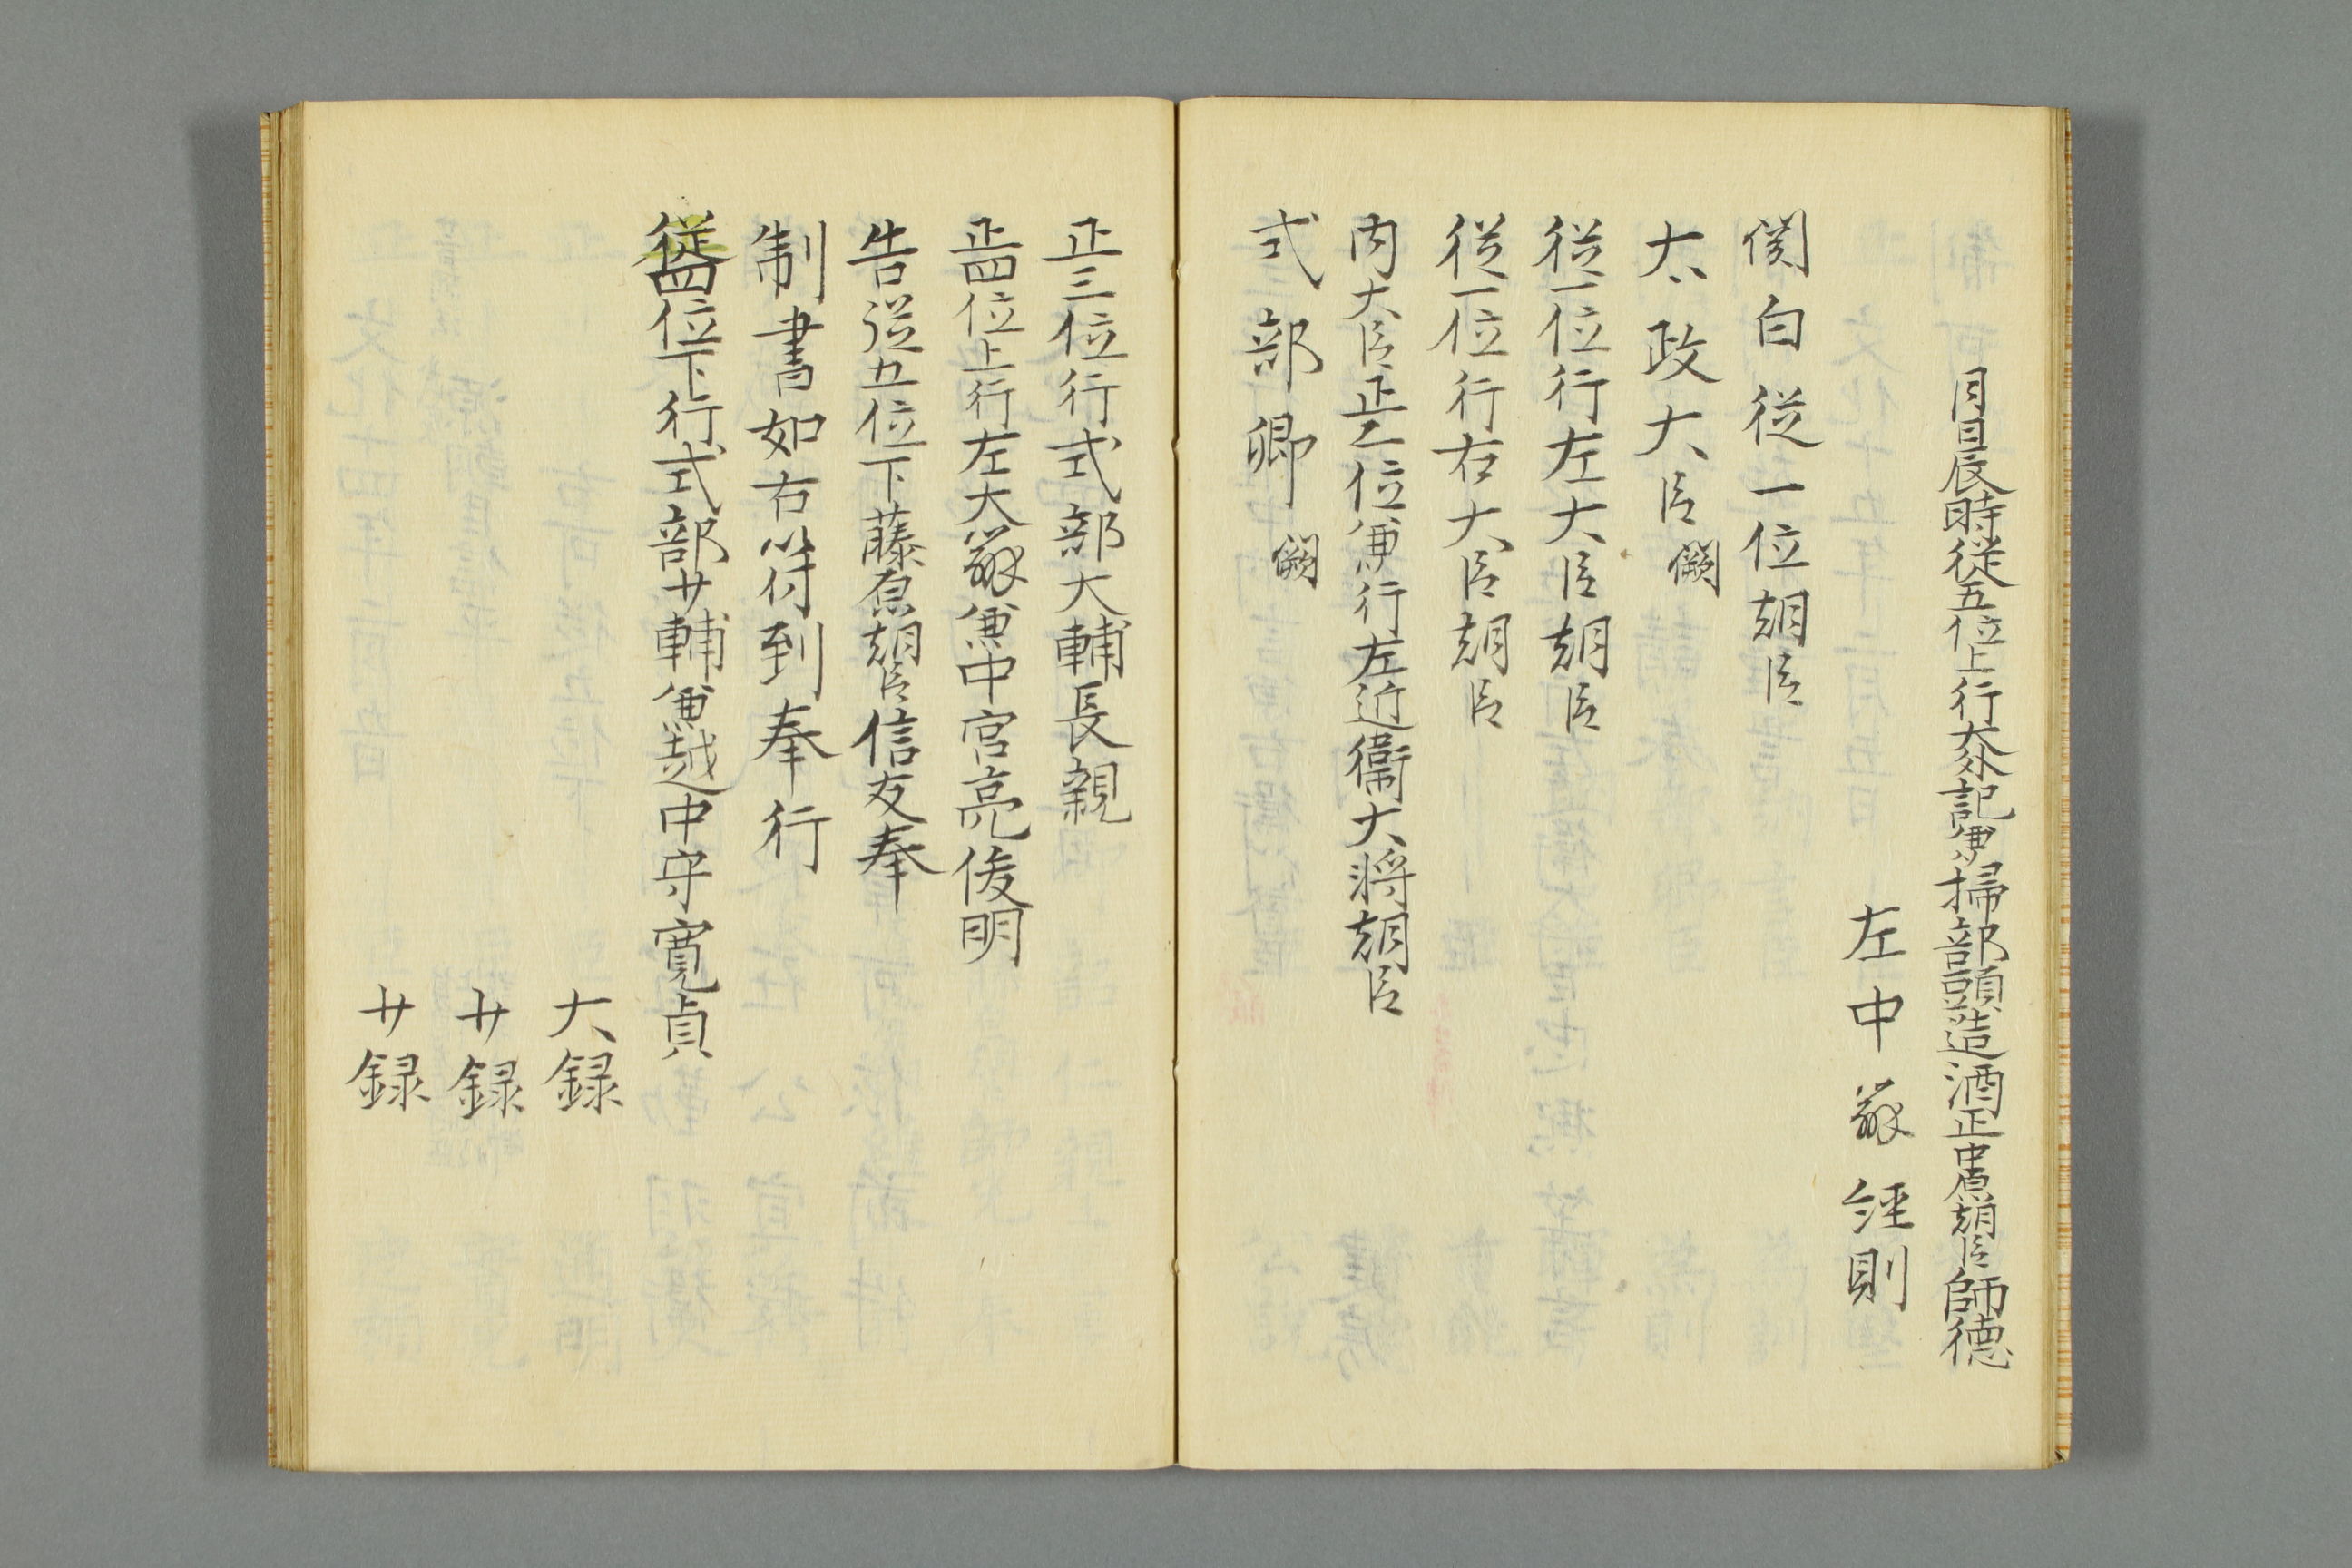 月日辰時従五位上行大外記兼掃部頭造酒正中原朝臣師徳
左中弁経則
関白従一位朝臣
太政大臣 闕
従一位行左大臣朝臣
従一位行右大臣朝臣
内大臣正二位兼行左近衛大将朝臣
式部卿 闕
正三位行式部大輔長親
正四位上行左大弁兼中宮亮俊明
告従五位下藤原朝臣信友奉
制書如右符到奉行
従四位下行式部少輔兼越中守寛貞
大録
少録
少録